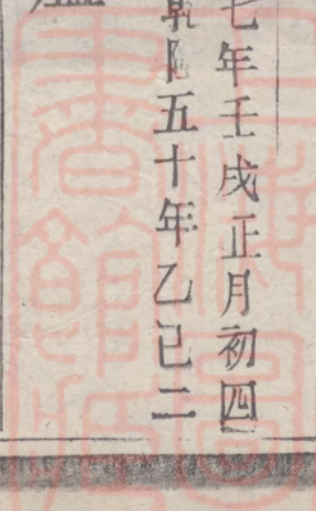 七年壬戌正月初四
乾隆五十年乙巳二